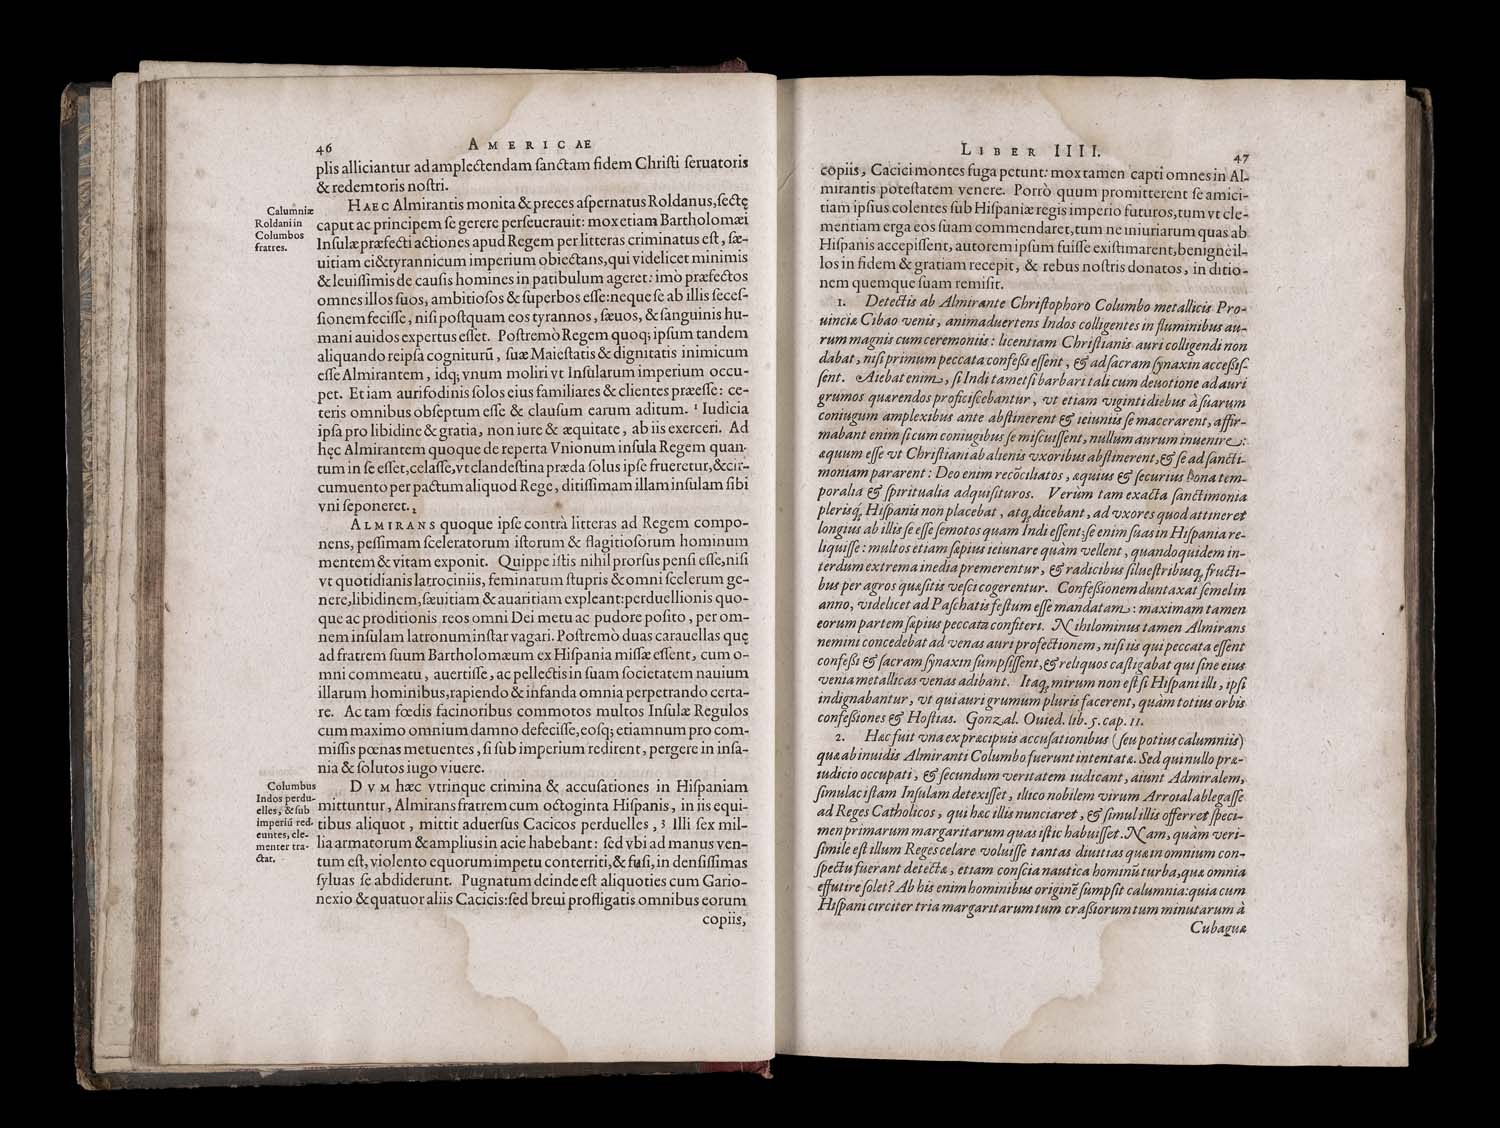 46 AMERICAE
plis alliciantur ad amplectendam ſanctam fidem Chriſti ſeruatoris
& redemtoris noſtri.
HAEC Almirantis monita & preces aſpernatus Roldanus, ſectę
caput ac principem ſe gerere perſeuerauit: mox etiam Bartholomæi
Inſulæ præfecti actiones apud Regem per litteras criminatus eſt, ſæ-
uitiam ei & tyrannicum imperium obiectans, qui videlicet minimis
& leuiſſimis de cauſis homines in patibulum ageret: imò præfectos
omnes illos ſuos, ambitioſos & ſuperbos eſſe: neque ſe ab illis ſeceſ-
ſionem feciſſe, niſi poſtquam eos tyrannos, ſæuos, & ſanguinis hu-
mani auidos expertus eſſet. Poſtremò Regem quoq; ipſum tandem
aliquando reipſa cogniturũ, ſuæ Maieſtatis & dignitatis inimicum
eſſe Almirantem, idq; vnum moliri vt Inſularum imperium occu-
pet. Et iam aurifodinis ſolos eius familiares & clientes præeſſe: ce-
teris omnibus obſeptum eſſe & clauſum earum aditum. 1 Iudicia
ipſa pro libidine & gratia, non iure & æquitate, ab iis exerceri. Ad
hęc Almirantem quoque de reperta Vnionum inſula Regem quan-
tum in ſe eſſet, celaſſe, vt clandeſtina præda ſolus ipſe frueretur, & cir-
cumuento per pactum aliquod Rege, ditiſſimam illam inſulam ſibi
vni ſeponeret. 2
ALMIRANS quoque ipſe contrà litteras ad Regem compo-
nens, peſſimam ſceleratorum iſtorum & flagitioſorum hominum
mentem & vitam exponit. Quippe iſtis nihil prorſus penſi eſſe, niſi
vt quotidianis latrociniis, feminarum ſtupris & omni ſcelerum ge-
nere, libidinem, ſæuitiam & auaritiam expleant: perduellionis quo-
que ac proditionis reos omni Dei metu ac pudore poſito, per om-
nem inſulam latronum inſtar vagari. Poſtremò duas carauellas quę
ad fratrem ſuum Bartholomæum ex Hiſpania miſſæ eſſent, cum o-
mni commeatu, auertiſſe, ac pellectis in ſuam ſocietatem nauium
illarum hominibus, rapiendo & infanda omnia perpetrando certa-
re. Ac tam fœdis facinoribus commotos multos Inſulæ Regulos
cum maximo omnium damno defeciſſe, eoſq; etiamnum pro com-
miſſis pœnas metuentes, ſi ſub imperium redirent, pergere in inſa-
nia & ſolutos iugo viuere.
DVM hæc vtrinque crimina & accuſationes in Hiſpaniam
mittuntur, Almirans fratrem cum octoginta Hiſpanis, in iis equi-
tibus aliquot, mittit aduerſus Cacicos perduelles, 3 Illi ſex mil-
lia armatorum & amplius in acie habebant: ſed vbi ad manus ven-
tum eſt, violento equorum impetu conterriti, & fuſi, in denſiſſimas
ſyluas ſe abdiderunt. Pugnatum deinde eſt aliquoties cum Gario-
nexio & quatuor aliis Cacicis: ſed breui profligatis omnibus eorum
copiis,
Calumniæ
Roldani in
Columbos
fratres.
Columbus
Indos perdu-
elles, & ſub
imperiũ red-
euntes, cle-
menter tra-
ctat.
LIBER IIII. 47
copiis, Cacici montes fuga petunt: mox tamen capti omnes in Al-
mirantis poteſtatem venere. Porrò quum promitterent ſe amici-
tiam ipſius colentes ſub Hiſpaniæ regis imperio futuros, tum vt cle-
mentiam erga eos ſuam commendaret, tum ne iniuriarum quas ab
Hiſpanis accepiſſent, autorem ipſum fuiſſe exiſtimarent, benignè il-
los in fidem & gratiam recepit, & rebus noſtris donatos, in ditio-
nem quemque ſuam remiſit.
1. Detectis ab Almirante Chriſtophoro Columbo metallicis Pro-
uinciæ Cibao venis, animaduertens Indos colligentes in fluminibus au-
rum magnis cum ceremoniis: licentiam Chriſtianis auri colligendi non
dabat, niſi primum peccata confeſsi eſſent, & ad ſacram ſynaxin acceſsiſ-
ſent. Aiebat enim, ſi Indi tametſi barbari tali cum deuotione ad auri
grumos quærendos proficiſcebantur, vt etiam viginti diebus à ſuarum
coniugum amplexibus ante abſtinerent & ieiuniis ſe macerarent, affir-
mabant enim ſi cum coniugibus ſe miſcuiſſent, nullum aurum inuenire:
æquum eſſe vt Chriſtiani ab alienis vxoribus abſtinerent, & ſe ad ſancti-
moniam pararent: Deo enim recõciliatos, æquius & ſecurius bona tem-
poralia & ſpiritualia adquiſituros. Verùm tam exacta ſanctimonia
pleriſq; Hiſpanis non placebat, atq; dicebant, ad vxores quod attineret
longius ab illis ſe eſſe ſemotos quam Indi eſſent: ſe enim ſuas in Hiſpania re-
liquiſſe: multos etiam ſæpius ieiunare quàm vellent, quandoquidem in-
terdum extrema inedia premerentur, & radicibus ſilueſtribusq; fructi-
bus per agros quæſitis veſci cogerentur. Confeſsionem duntaxat ſemel in
anno, videlicet ad Paſchatis feſtum eſſe mandatam: maximam tamen
eorum partem ſæpius peccata confiteri. Nihilominus tamen Almirans
nemini concedebat ad venas auri profectionem, niſi iis qui peccata eſſent
confeſsi & ſacram ſynaxin ſumpſiſſent, & reliquos caſtigabat qui ſine eius
venia metallicas venas adibant. Itaq; mirum non eſt ſi Hiſpani illi, ipſi
indignabantur, vt qui auri grumum pluris facerent, quàm totius orbis
confeſsiones & Hoſtias. Gonzal. Ouied. lib. 5. cap. 11.
2. Hæc fuit vna ex præcipuis accuſationibus (ſeu potius calumniis)
quæ ab inuidis Almiranti Columbo fuerunt intentatæ. Sed qui nullo præ-
iudicio occupati, & ſecundum veritatem iudicant, aiunt Admiralem,
ſimulac iſtam Inſulam detexiſſet, illico nobilem virum Arroial ablegaſſe
ad Reges Catholicos, qui hæc illis nunciaret, & ſimul illis offerret ſpeci-
men primarum margaritarum quas iſtic habuiſſet. Nam, quàm veri-
ſimile eſt illum Reges celare voluiſſe tantas diuitias quæ in omnium con-
ſpectu fuerant detectæ, etiam conſcia nautica hominũ turba, quæ omnia
effutire ſolet? Ab his enim hominibus originẽ ſumpſit calumnia: quia cum
Hiſpani circiter tria margaritarum tum craſsiorum tum minutarum à
Cubaguæ